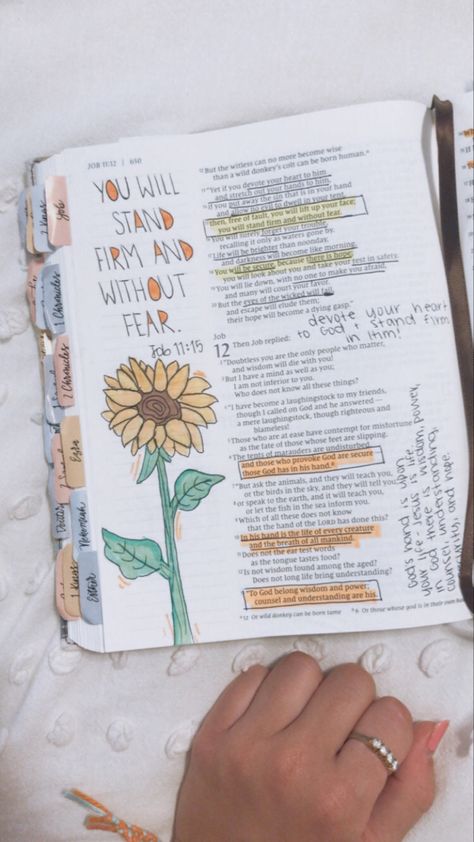 JOB 11:12 | 650
YOU WILL
STAND
FIRM AND
WITHOUT
FEAR.
Job 11:15
¹²But the witless can no more become wise
than a wild donkey's colt can be born human.ᵃ
¹³"Yet if you devote your heart to him
and stretch out your hands to him,
¹⁴if you put away the sin that is in your hand
and allow no evil to dwell in your tent,
¹⁵then, free of fault, you will lift up your face;
you will stand firm and without fear.
¹⁶You will surely forget your trouble,
recalling it only as waters gone by.
¹⁷Life will be brighter than noonday,
and darkness will become like morning.
¹⁸You will be secure, because there is hope;
you will look about you and take your rest in safety.
¹⁹You will lie down, with no one to make you afraid,
and many will court your favor.
²⁰But the eyes of the wicked will fail,
and escape will elude them;
their hope will become a dying gasp."
devote your heart
to God + stand firm
in Him!
Job
12 Then Job replied:
²"Doubtless you are the only people who matter,
and wisdom will die with you!
³But I have a mind as well as you;
I am not inferior to you.
Who does not know all these things?
⁴"I have become a laughingstock to my friends,
though I called on God and he answered —
a mere laughingstock, though righteous and
blameless!
⁵Those who are at ease have contempt for misfortune
as the fate of those whose feet are slipping.
⁶The tents of marauders are undisturbed,
and those who provoke God are secure
those God has in his hand.ᵇ
⁷"But ask the animals, and they will teach you,
or the birds in the sky, and they will tell you;
⁸or speak to the earth, and it will teach you,
or let the fish in the sea inform you.
⁹Which of all these does not know
that the hand of the LORD has done this?
¹⁰In his hand is the life of every creature
and the breath of all mankind.
¹¹Does not the ear test words
as the tongue tastes food?
¹²Is not wisdom found among the aged?
Does not long life bring understanding?
¹³"To God belong wisdom and power;
counsel and understanding are his.
God's hand is upon
your life. Jesus is life.
in God there is wisdom, power,
counsel, understanding,
and hope.
ᵃ12 Or wild donkey can be born tame ᵇ6 Or those whose god is in their own
Job
2 Kings
1 Chronicles
2 Chronicles
Ezra
Nehemiah
Esther
1 Kings